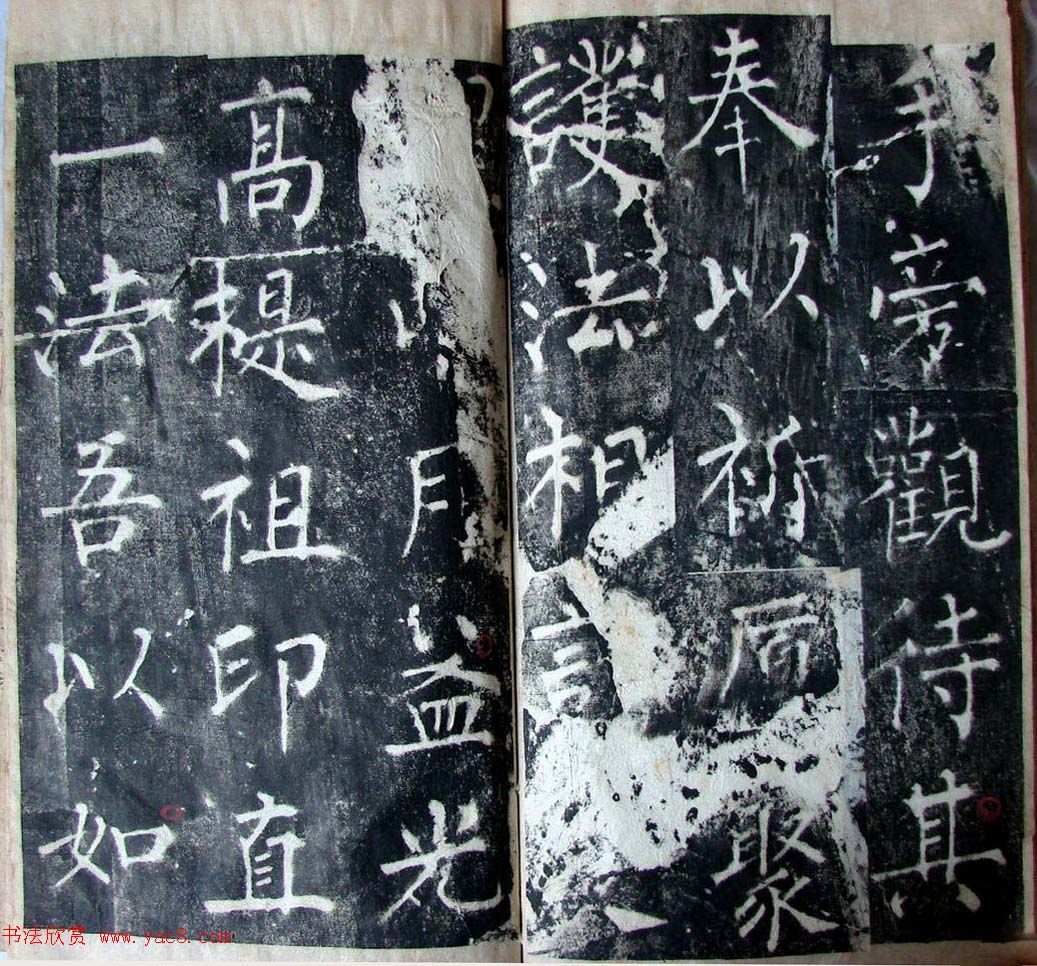 手旁觀待其
奉以祈聚
護法相
月益光
高提祖印直
一法吾以如
书法欣赏 www.yac8.com